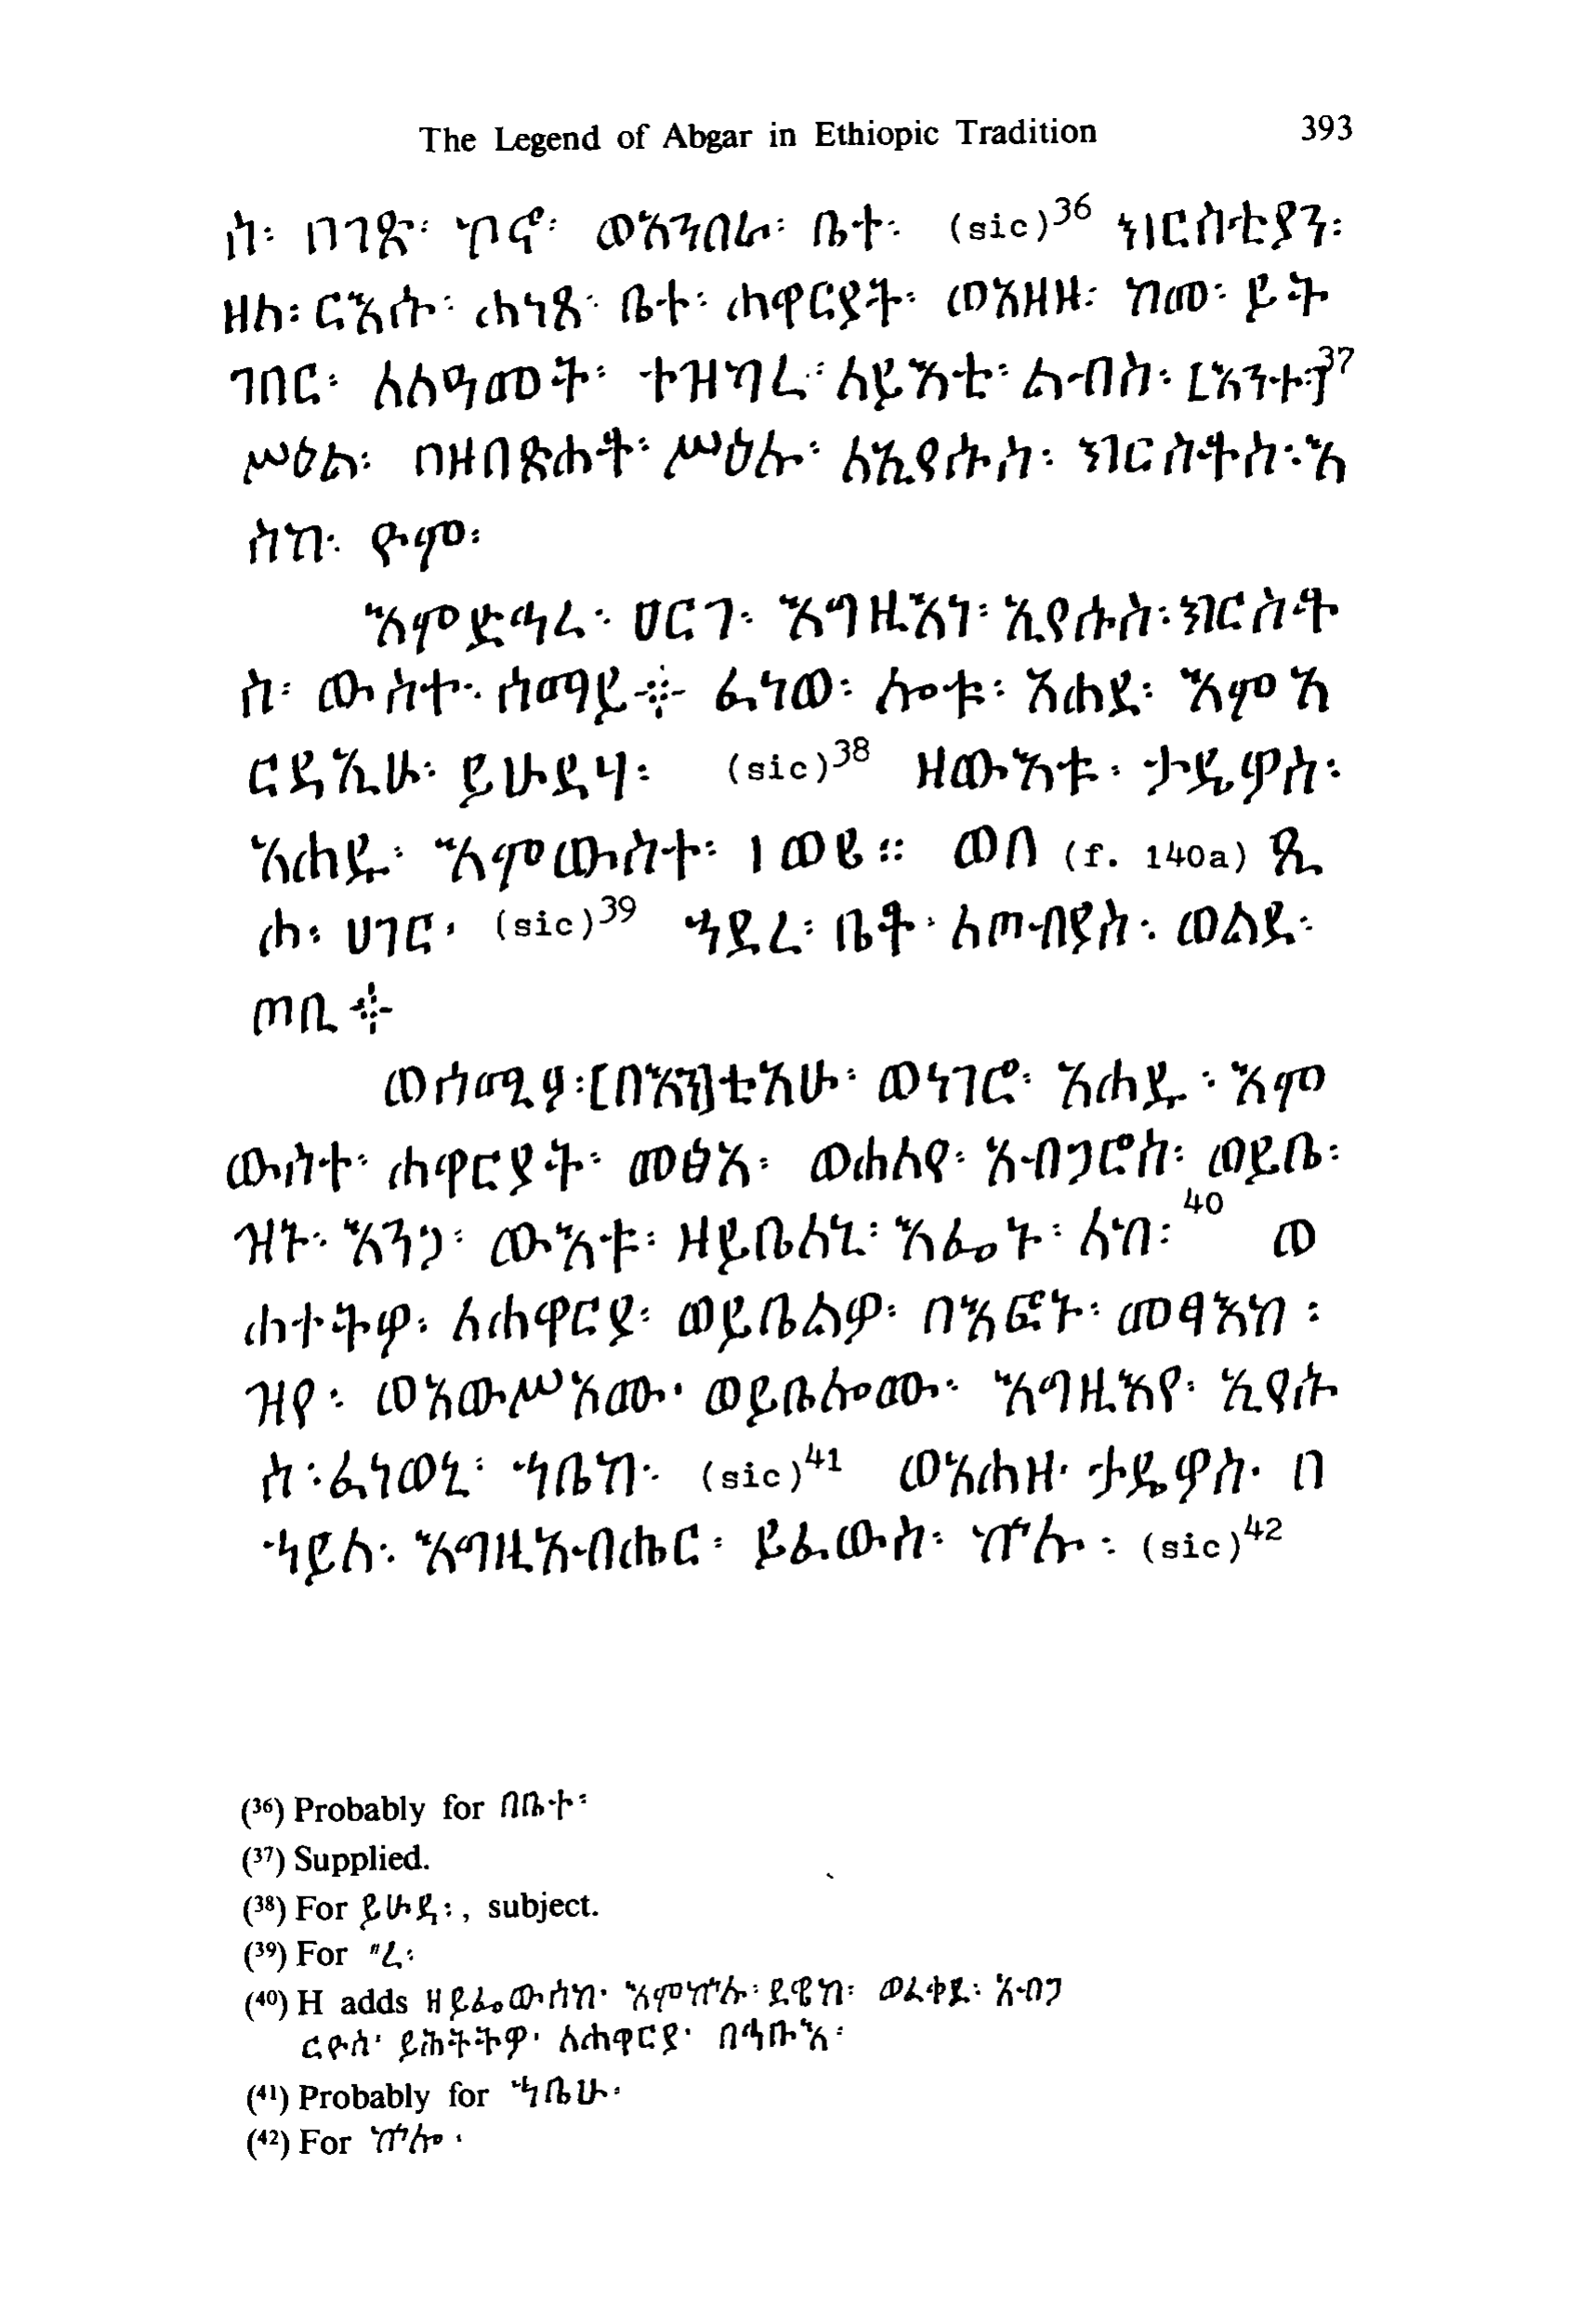 The Legend of Abgar in Ethiopic Tradition 393
ስ፡ በገጽ፡ ኮኖ፡ ወአንበራ፡ ቤተ፡ (sic)36 ክርስቲያን፡
ዘለ፡ ርእሱ፡ ሐነጸ፡ ቤተ፡ ሐዋርያት፡ ወአዘዘ፡ ከመ፡ ይት
ገበር፡ ለለዓመት፡ ተዝካረ፡ ለይእቲ፡ ልብስ፡ [እንተ፡]37
ሥዕል፡ በዘበጽሐት፡ ሥዕሉ፡ ለኢየሱስ፡ ክርስቶስ፡ እ
ስከ፡ ዮም፡
እምድኅረ፡ ዐርገ፡ እግዚእነ፡ ኢየሱስ፡ ክርስቶ
ስ፡ ውስተ፡ ሰማይ፨ ፈነወ፡ ሎቱ፡ አሐደ፡ እምአ
ርዳኢሁ፡ ይሁዳሃ፡ (sic)38 ዝውእቱ፡ ታዴዎስ፡
አሐዱ፡ እምውስተ፡ ፲ወ፪። ወበ (f. 140a) ጺ
ሐ፡ ሀገር፡ (sic)39 ኀደረ፡ ቤት፡ ለጦብያስ፡ ወልደ፡
ጦቢ፨
ወሰሚዖ፡ [በእን]ቲአሁ፡ ወነገሮ፡ አሐዱ፡ እም
ውስተ፡ ሐዋርያት፡ መፅአ፡ ወሐለየ፡ አብጋሮስ፡ ወይቤ፡
ዝኑ፡ እንጋ፡ ውእቱ፡ ዘይቤለኒ፡ እፌኑ፡ ለከ፡40 ወ
ሐተትዎ፡ ለሐዋርያ፡ ወይቤልዎ፡ በእፎኑ፡ መፃእከ፡
ዝየ፡ ወአውሥአሙ፡ ወይቤሎሙ፡ እግዚእየ፡ ኢየሱ
ስ፡ ፈነወኒ፡ ኀቤከ፡ (sic)41 ወአሐዘ፡ ታዴዎስ፡ በ
ኀይለ፡ እግዚአብሔር፡ ይፈውስ፡ ኵሉ፡ (sic)42
(36) Probably for በቤተ፡
(37) Supplied.
(38) For ይሁዳ፡, subject.
(39) For "ረ፡
(40) H adds ዘይፌውስከ፡ እምኵሉ፡ ደዌከ፡ ወፈቀደ፡ አብጋ
ርዮስ፡ ይሕትትዎ፡ ለሐዋርያ፡ በኅቡእ፡
(41) Probably for ኀቤሁ፡
(42) For ኵሎ፡